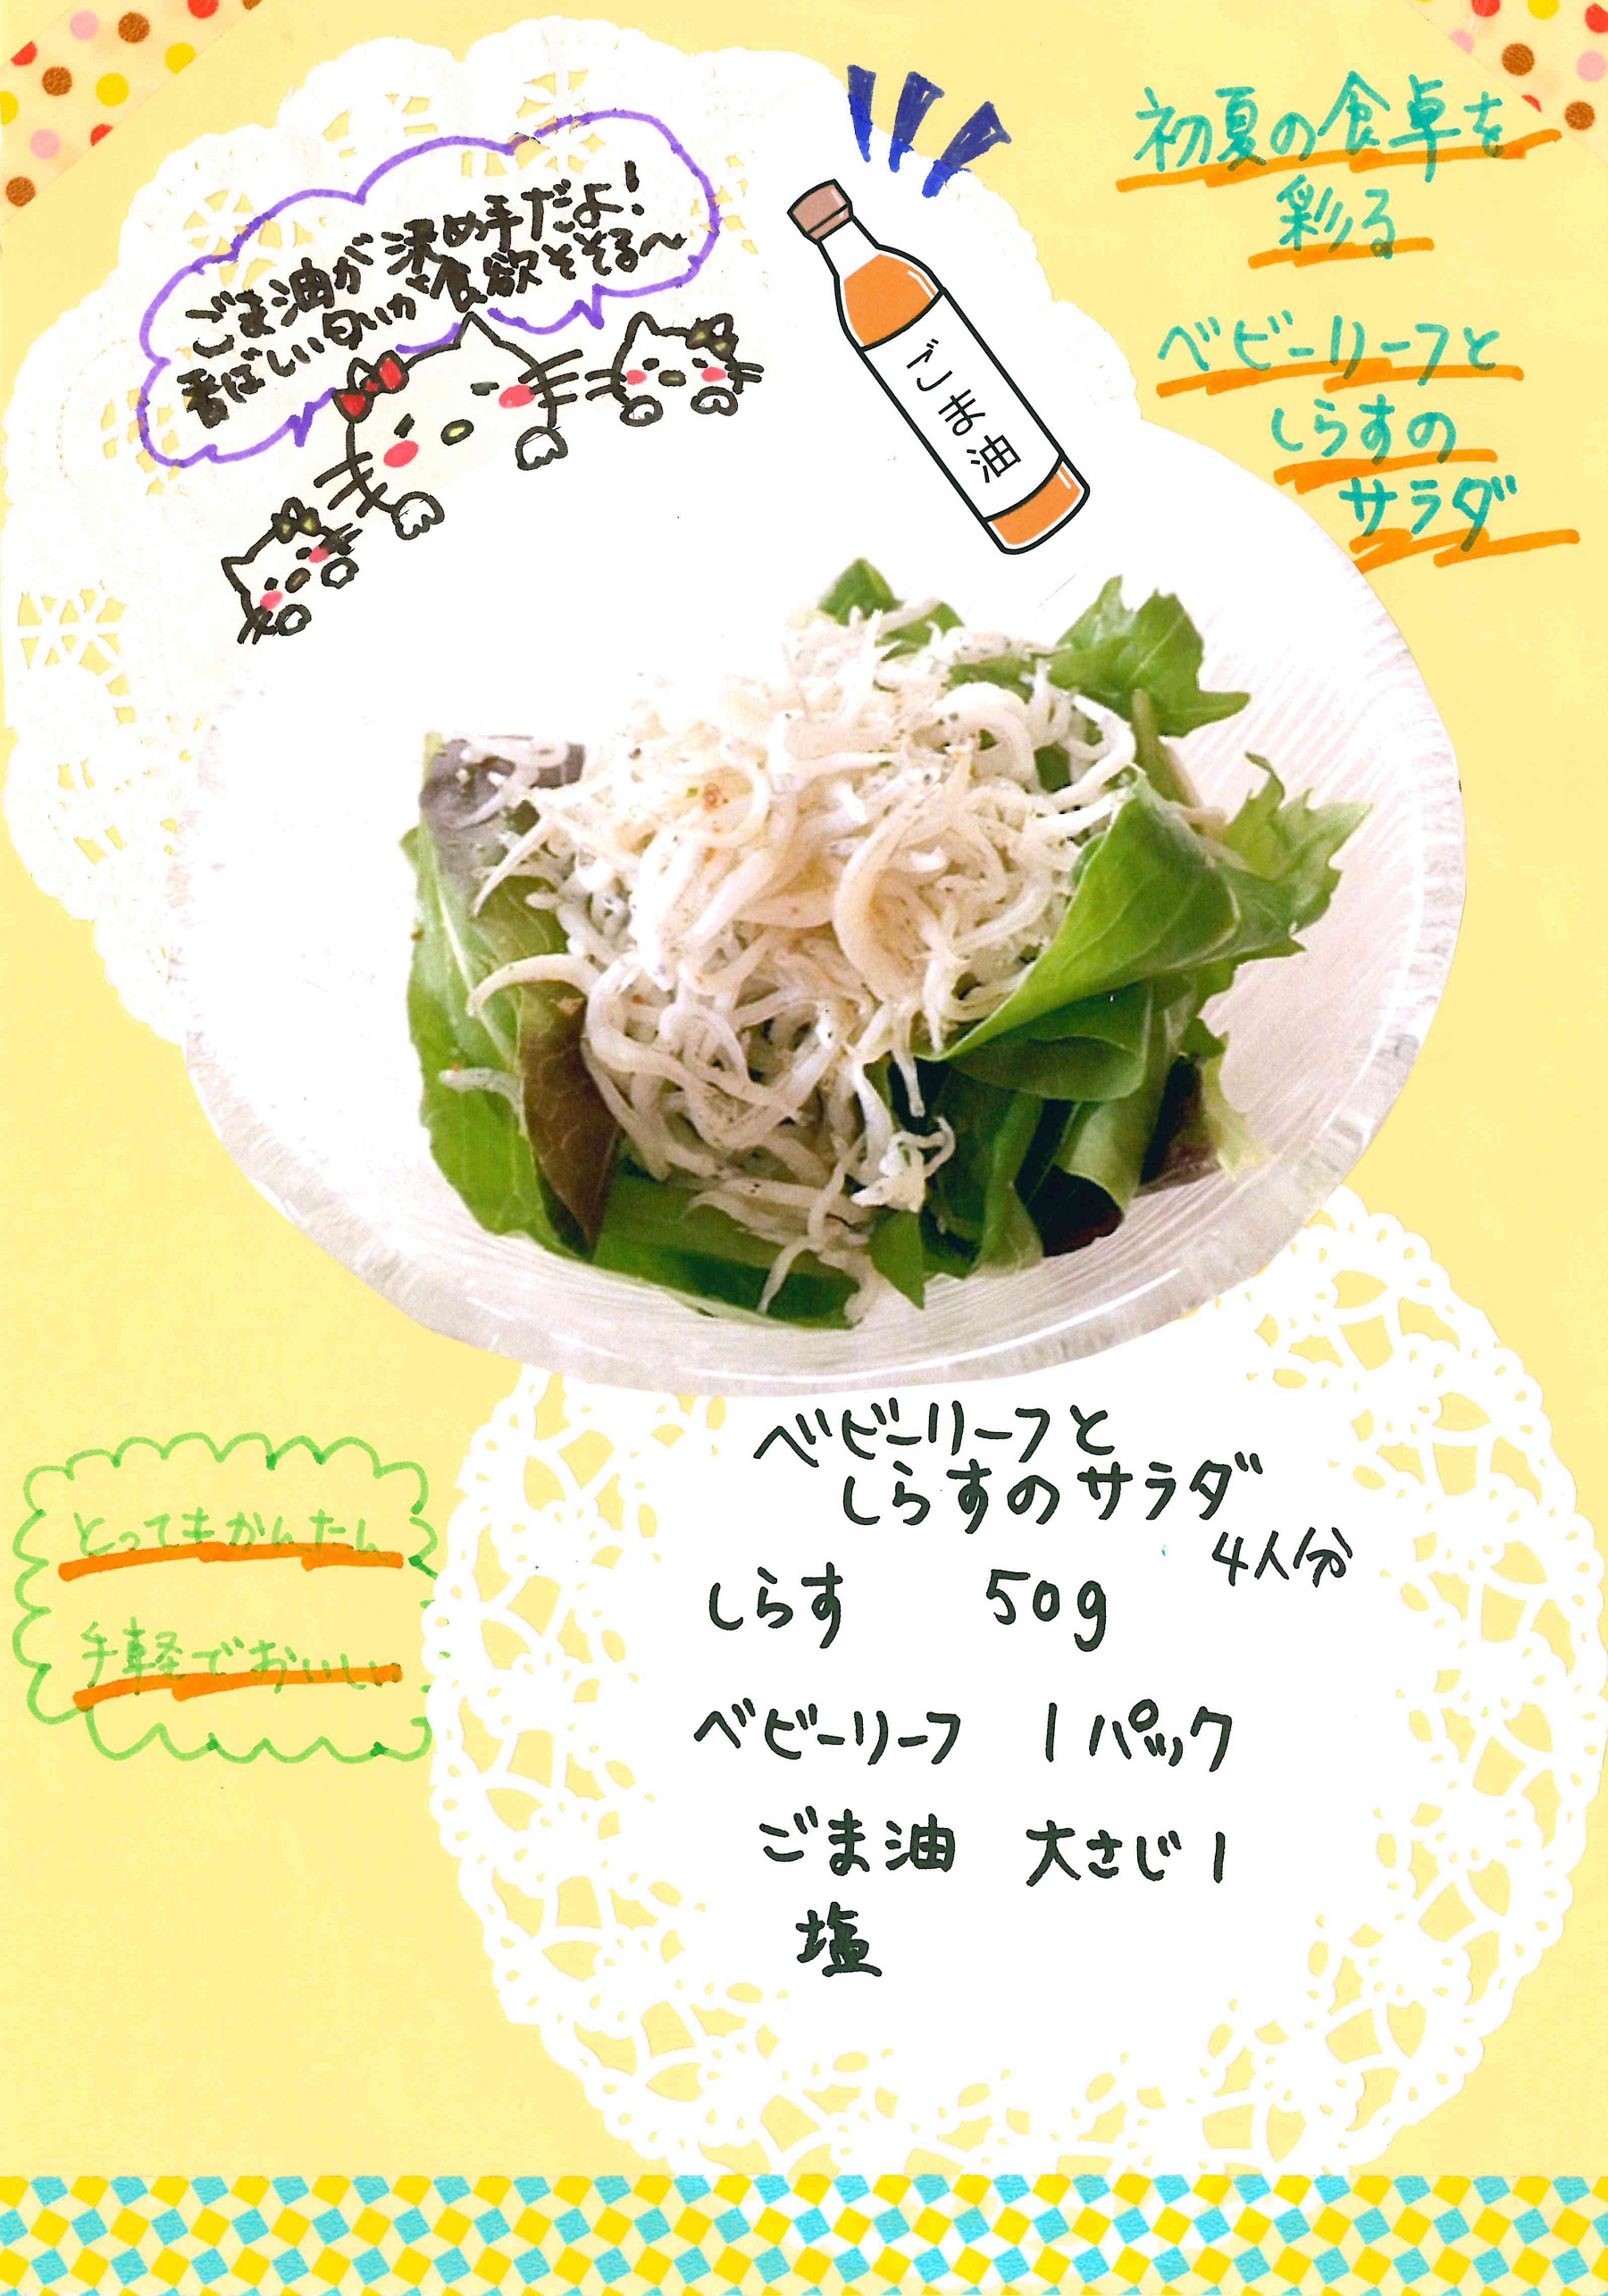 初夏の食卓を
彩る
ベビーリーフと
しらすの
サラダ
ごま油が決め手だよ!
香ばしい匂いが食欲そそる〜
ごま油
ベビーリーフと
しらすのサラダ
4人分
しらす 50g
ベビーリーフ 1パック
ごま油 大さじ1
塩
とってもかんたん
手軽でおいしい